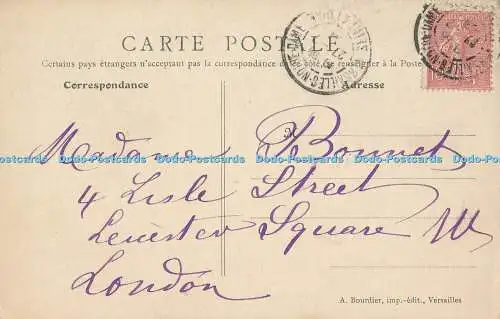 CARTE POSTALE
Certains pays étrangers n'acceptant pas la correspondance de ce côté, se renseigner à la Poste
Correspondance
Adresse
Madame Bonnet
4 Lisle Street
Leicester Square W
London
A. Bourdier, imp.-édit., Versailles
Dodo-Postcards Dodo-Postcards Dodo-Postcards Dodo-Postcards Dodo-Postcards